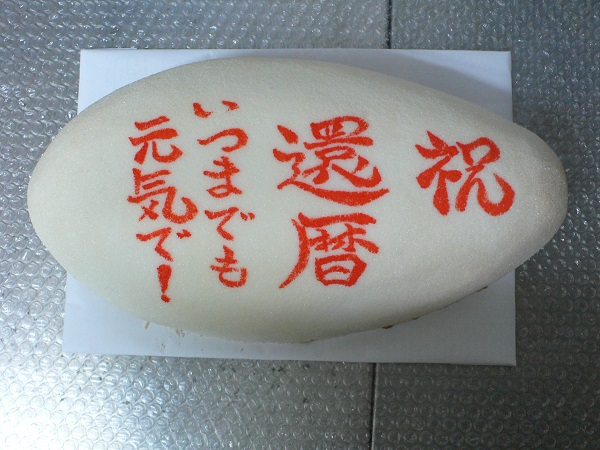 祝
還暦
いつまでも
元気で!